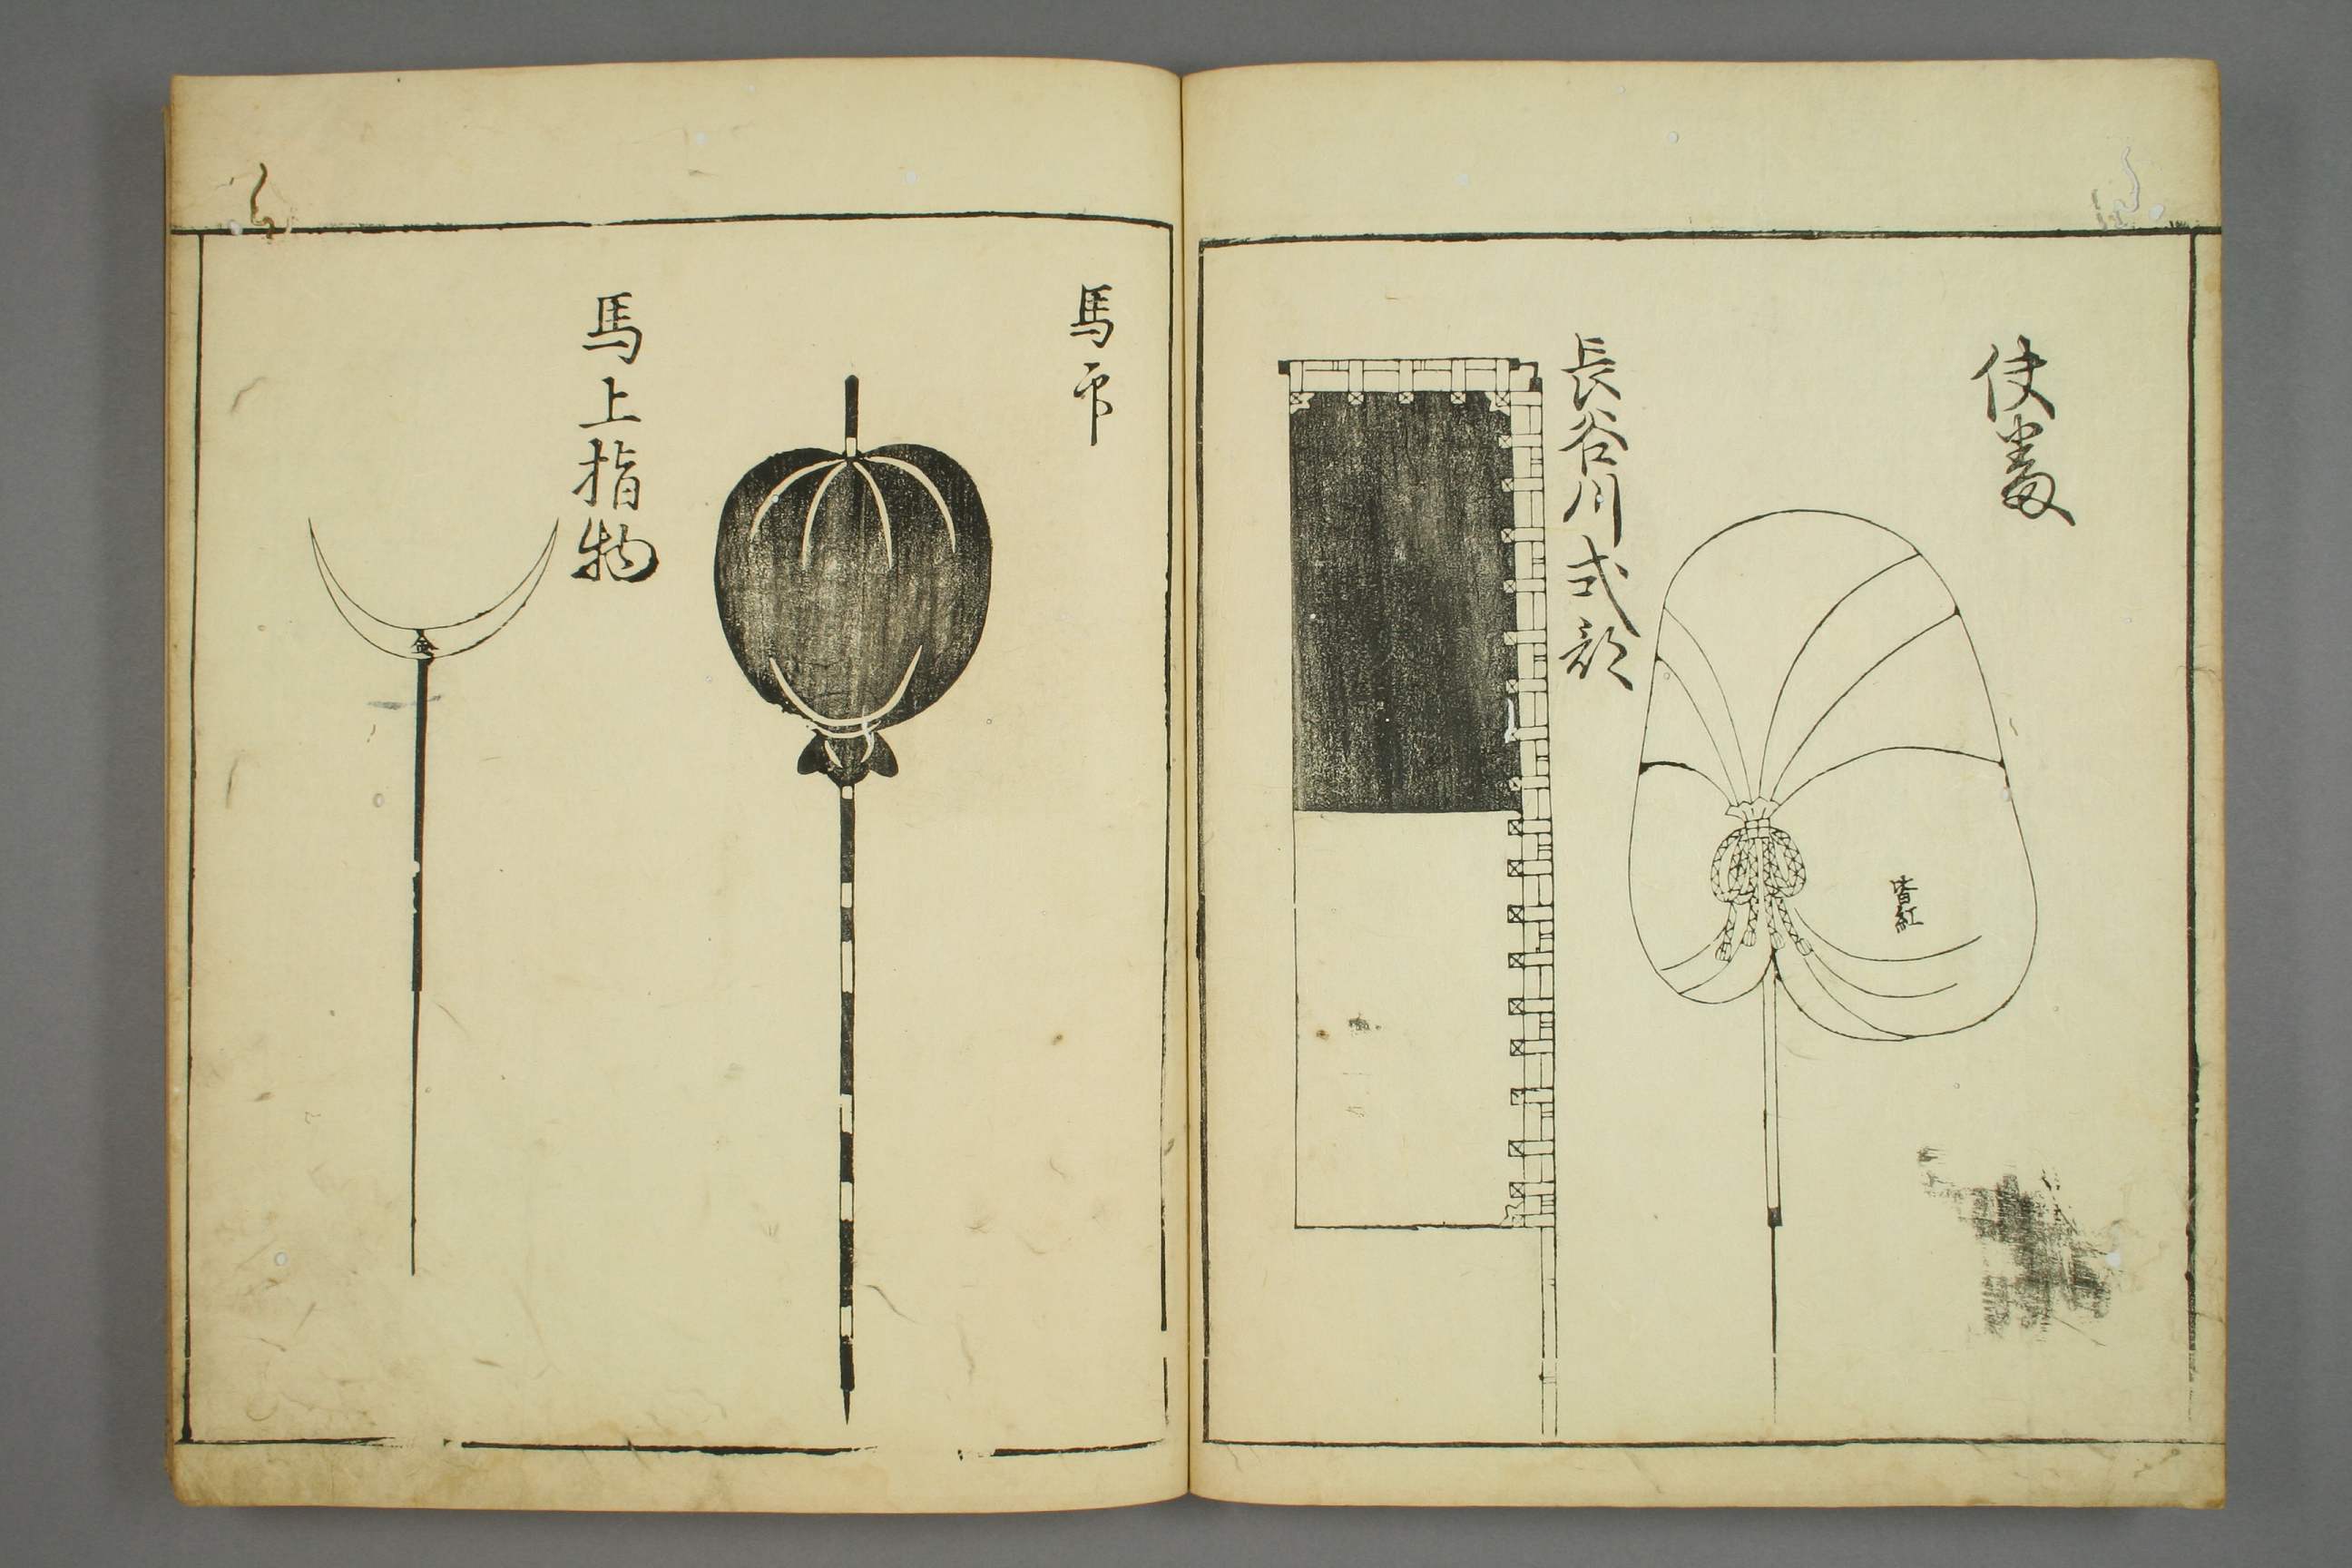 使番
皆紅
長谷川式部
馬印
馬上指物
金